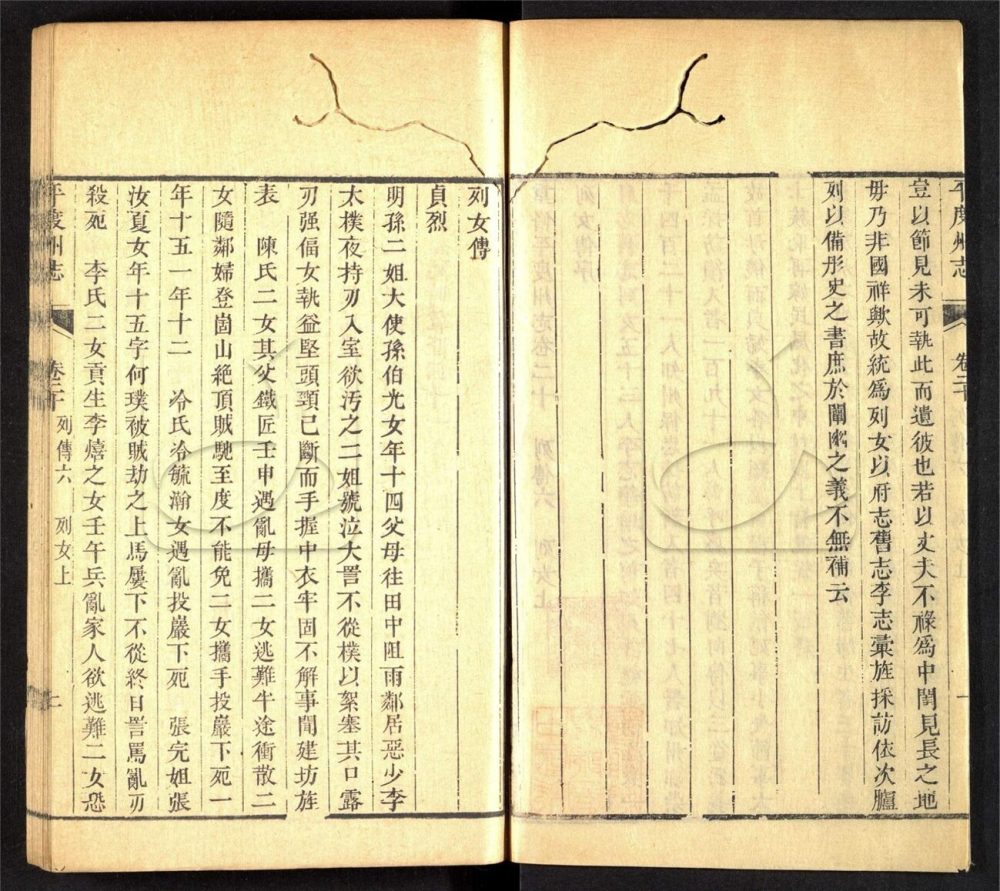 平度州志 卷二十 一
豈以節見未可執此而遺彼也若以丈夫不祿為中閨見長之地
毋乃非國祥歟故統為列女以府志舊志李志彙旌採訪依次臚
列以備彤史之書庶於闡幽之義不無補云
列女傳
貞烈
明孫二姐大使孫伯光女年十四父母往田中阻雨鄰居惡少李
太樸夜持刃入室欲汚之二姐號泣大詈不從樸以絮塞其口露
刃强偪女執益堅頭頸已斷而手握中衣牢固不解事聞建坊旌
表 陳氏二女其父鐵匠壬申遇亂母攜二女逃難半途衝散二
女隨鄰婦登崮山絶頂賊馳至度不能免二女攜手投巖下死一
年十五一年十二 冷氏冷毓瀚女遇亂投巖下死 張完姐張
汝夏女年十五字何璞被賊劫之上馬屢下不從終日詈罵亂刃
殺死 李氏二女貢生李熺之女壬午兵亂家人欲逃難二女恐
平度州志 卷二十 列傳六 列女上 二